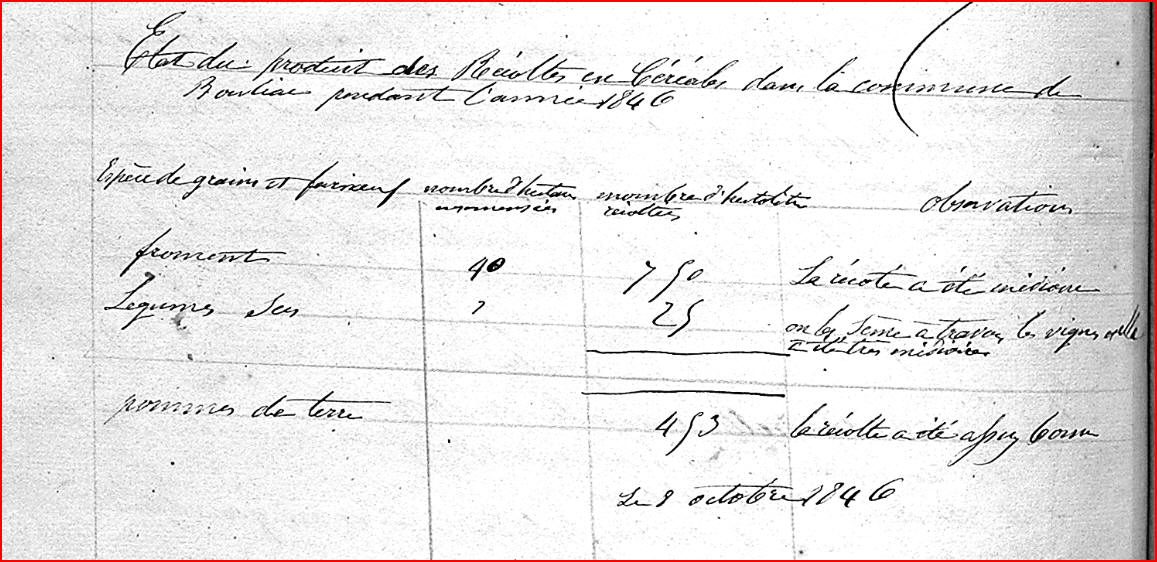 Etat du produit des Récoltes en Céréales dans la commune de
Bouliac pendant l'année 1846
Espèce de grains et farineux nombre d'hectares nombre d'hectolitres observations
ensemensées récoltées
froment 40 750 La récote a été médiocre
Légumes Secs 7 25 on les Sème a travers les vignes elle
a été très médiocre
pommes de terre 453 la récolte a été assez bonne
Le 8 octobre 1846